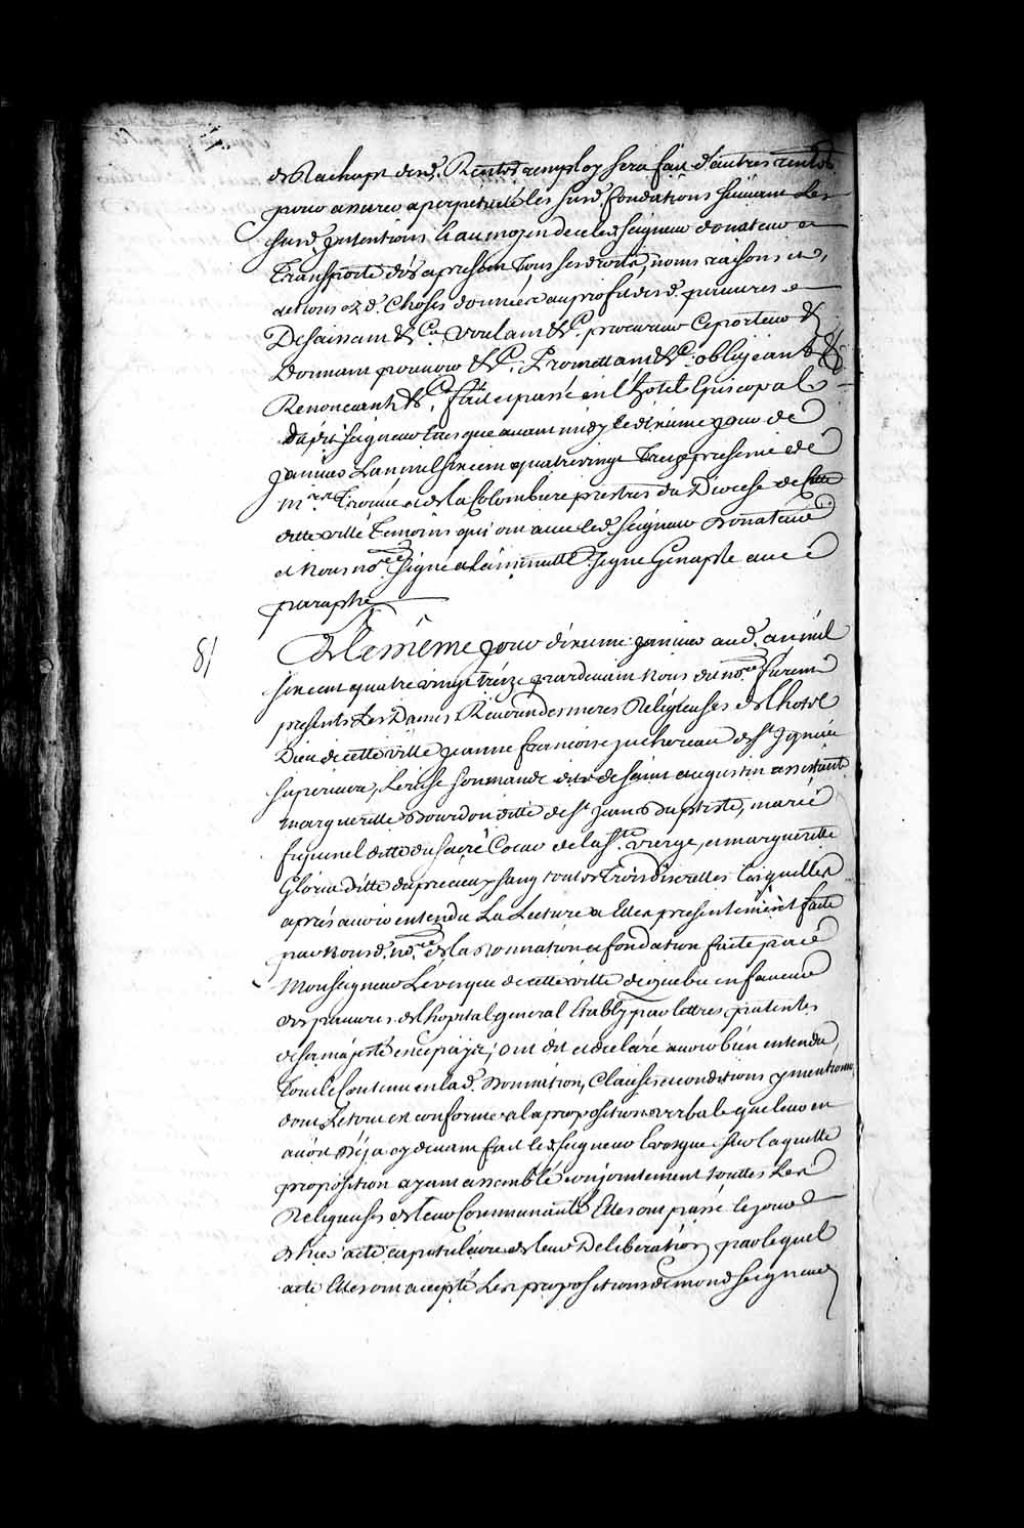 de Rachapt desd. Rentes remploy sera fait d'autres rentes
pour assurer a perpetuité les susd. fondations suivant les
susd. intentions le au moyen de ce led. seigneur donateur a
Transporté dés apresent tous ses droits, noms raisons et
actions ezd. Choses données au profit desd. pauvres
Desaisant &c. voulant &c. procureur Ceporteur &
Donnant pouvoir &c. Promettant &c. obligeant &c
Renonceant &c. fait et passé en l'hotel Episcopal
dudit seigneur Evesque avant midy le dixieme jour de
Janvier L'an mil six cent quatre vingt Treize presence de
Mrs. Trouvé et de la Colombiere prestres du Diocese de cette
ditte ville Temoins qui ont avec led. seigneur Donateur
et Nous nore. signé a la minutte signe Genaple avec
paraphe
81 Et le même jour dixieme janvier aud. an mil
six cent quatre vingt treize pardevant Nous dit nore. furent
presents Les Dames Reverendes meres Religieuses de l'hotel
Dieu de cette ville Jeanne francoise juchereau de St. Ignace
superieure, Loüise soumande ditte de saint augustin assistante
marguerite Bourdon ditte de St. Jean Baptiste, marie
figuinel ditte du sacré Coeur de la Ste. vierge, et marguerite
Gloria ditte du precieux sang toutes Trois discrettes Lesquelles
aprés avoir entendu La Lecture a Elles presentement faite
par Nous d. nore. de la donnation et fondation faite par
Monseigneur L'evesque de cette ville de quebec en faveur
des pauvres de l'hopital general Etably par lettres patentes
de sa majesté en ce païs; ont dit et declaré avoir bien entendu
Tout le Contenu en lad. donnation, Clauses et conditions y mentionn
dont Le tout est conforme a la proposition verbale que leur en
avoit déja cy devant fait led. seigneur Evesque sur laquelle
proposition ayant assemblé conjointement touttes Les
Religieuses de leur Communauté Elles ont passé le jour
d'hier acte capitulaire de leur Deliberation par lequel
acte Elles ont accepté Les propositions de mond. seigneur